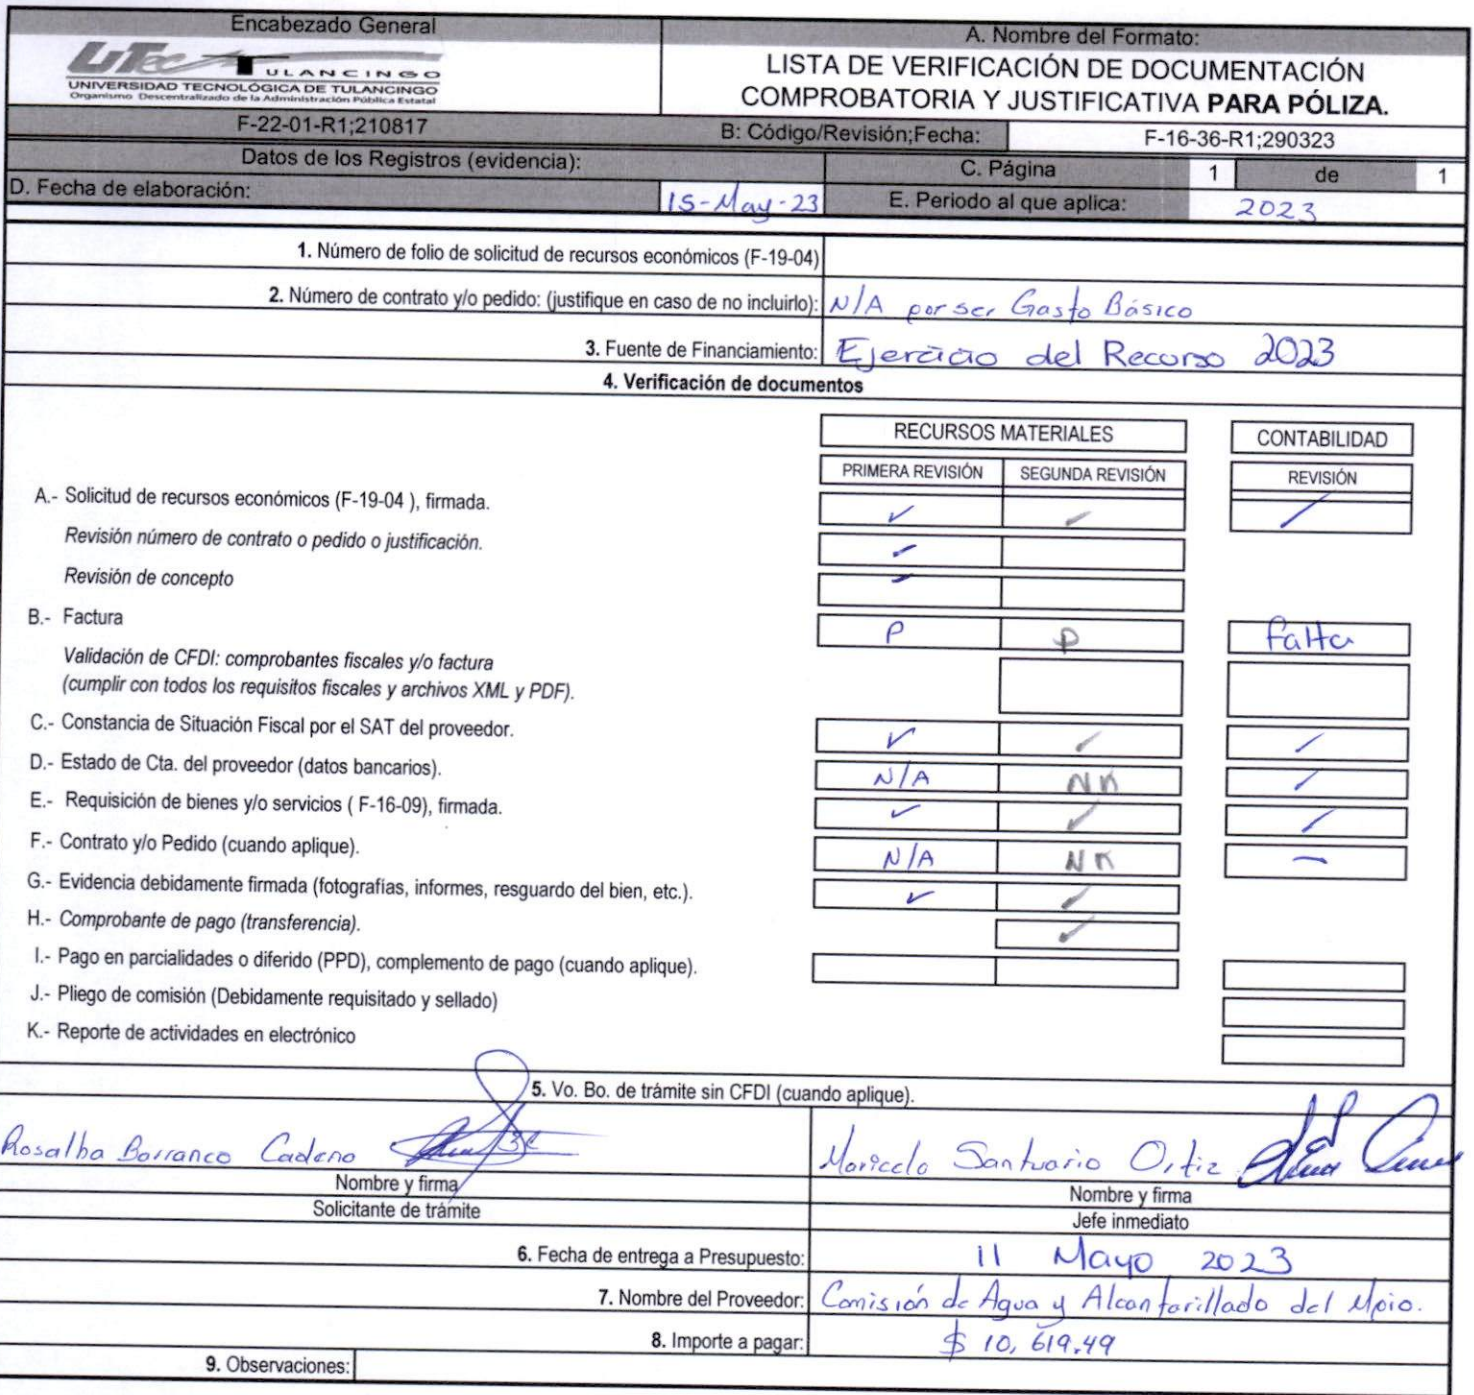 Encabezado General
A. Nombre del Formato:
UTec TULANCINGO
UNIVERSIDAD TECNOLÓGICA DE TULANCINGO
Organismo Descentralizado de la Administración Pública Estatal
LISTA DE VERIFICACIÓN DE DOCUMENTACIÓN
COMPROBATORIA Y JUSTIFICATIVA PARA PÓLIZA.
F-22-01-R1;210817
B: Código/Revisión;Fecha:
F-16-36-R1;290323
Datos de los Registros (evidencia):
C. Página 1 de 1
D. Fecha de elaboración: 15-May-23
E. Periodo al que aplica: 2023
1. Número de folio de solicitud de recursos económicos (F-19-04)
2. Número de contrato y/o pedido: (justifique en caso de no incluirlo): N/A por ser Gasto Básico
3. Fuente de Financiamiento: Ejercicio del Recurso 2023
4. Verificación de documentos
RECURSOS MATERIALES CONTABILIDAD
PRIMERA REVISIÓN SEGUNDA REVISIÓN REVISIÓN
A.- Solicitud de recursos económicos (F-19-04 ), firmada. ✓ ✓ /
Revisión número de contrato o pedido o justificación. ✓
Revisión de concepto ✓
B.- Factura P P Falta
Validación de CFDI: comprobantes fiscales y/o factura
(cumplir con todos los requisitos fiscales y archivos XML y PDF).
C.- Constancia de Situación Fiscal por el SAT del proveedor. ✓ ✓ /
D.- Estado de Cta. del proveedor (datos bancarios). N/A /
E.- Requisición de bienes y/o servicios ( F-16-09), firmada. ✓ ✓ /
F.- Contrato y/o Pedido (cuando aplique). N/A —
G.- Evidencia debidamente firmada (fotografías, informes, resguardo del bien, etc.). ✓ ✓
H.- Comprobante de pago (transferencia). ✓
I.- Pago en parcialidades o diferido (PPD), complemento de pago (cuando aplique).
J.- Pliego de comisión (Debidamente requisitado y sellado)
K.- Reporte de actividades en electrónico
5. Vo. Bo. de trámite sin CFDI (cuando aplique).
Rosalba Barranco Cadena
Maricela Santuario Ortiz
Nombre y firma
Nombre y firma
Solicitante de trámite
Jefe inmediato
6. Fecha de entrega a Presupuesto: 11 Mayo 2023
7. Nombre del Proveedor: Comisión de Agua y Alcantarillado del Mpio.
8. Importe a pagar: $ 10,619.49
9. Observaciones: